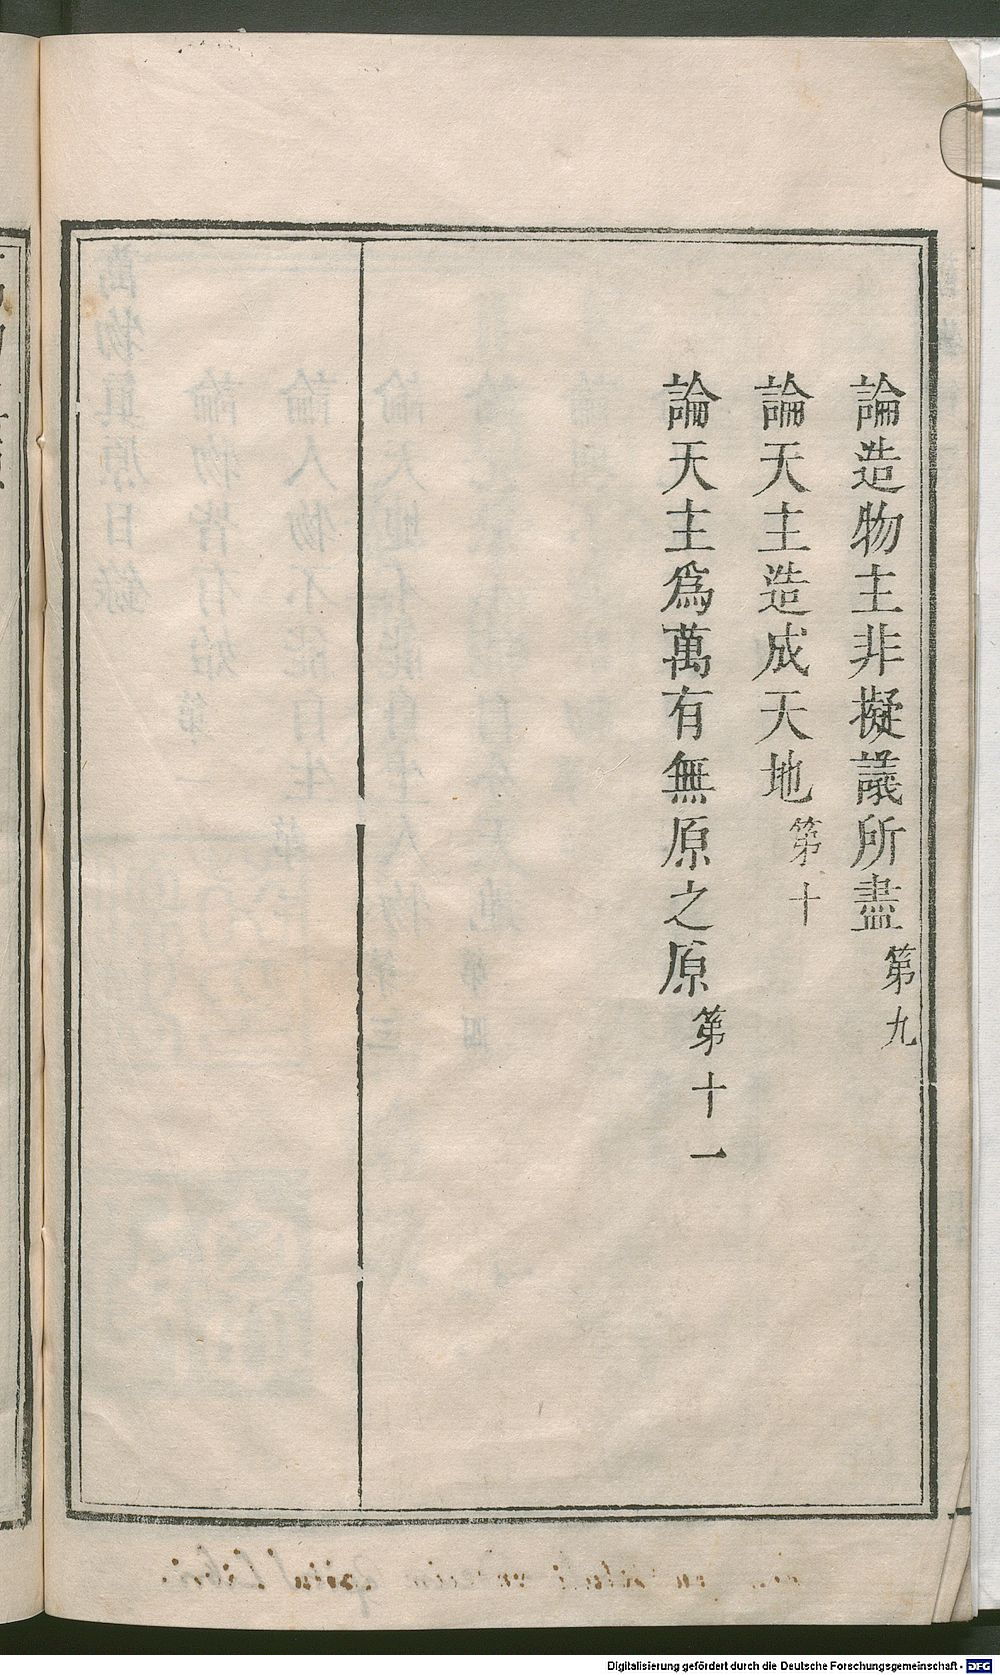 論造物主非擬議所盡第九
論天主造成天地第十
論天主爲萬有無原之原第十一
Digitalisierung gefördert durch die Deutsche Forschungsgemeinschaft - DFG